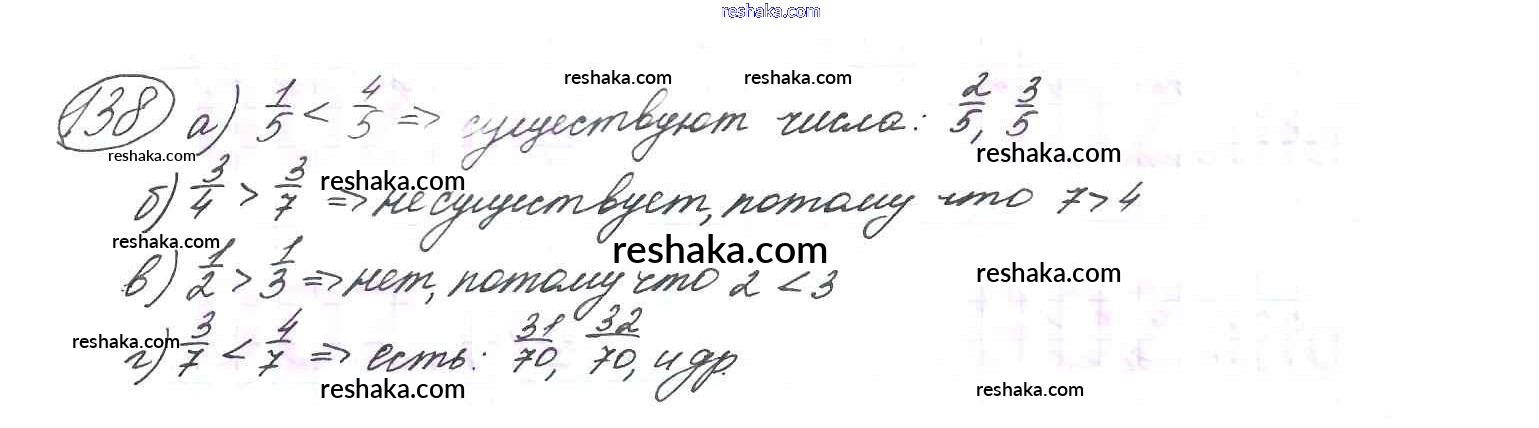 reshaka.com
reshaka.com reshaka.com
138 а) 1/5 < 4/5 => существуют числа: 2/5, 3/5
reshaka.com reshaka.com
reshaka.com
б) 3/4 > 3/7 => не существует, потому что 7 > 4
reshaka.com reshaka.com
в) 1/2 > 1/3 => нет, потому что 2 < 3
reshaka.com
reshaka.com
г) 3/7 < 4/7 => есть: 31/70, 32/70, и др.
reshaka.com reshaka.com